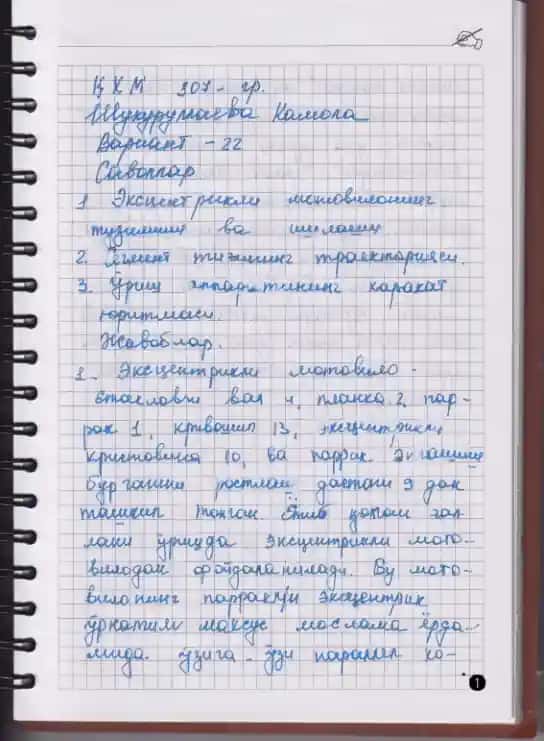 ҚХМ 307-гр.
Шукуруллаева Камола
Вариант - 22
Саволлар
1 Эксцентрикли мотовилонинг
тузилиши ва ишлаши
2. Сегмент тишининг траекторияси.
3. Ўриш аппаратининг харакат
юритмаси.
Жавоблар.
1. Эксцентрикли мотовило -
вал 4, планка 2, пар-
рак 1, кривошип 13, эксцентрикли
крестовина 10, ва паррак
бурчагини ростлаш дастаси 9 дан
ташкил топган. Ётиб қолган ғал-
лани ўришда эксцентрикли мото-
вилодан фойдаланилади. Бу мото-
вилонинг парраклари эксцентрик
ўрнатилган махсус мослама ёрда-
мида ўзига - ўзи параллел хо-
1